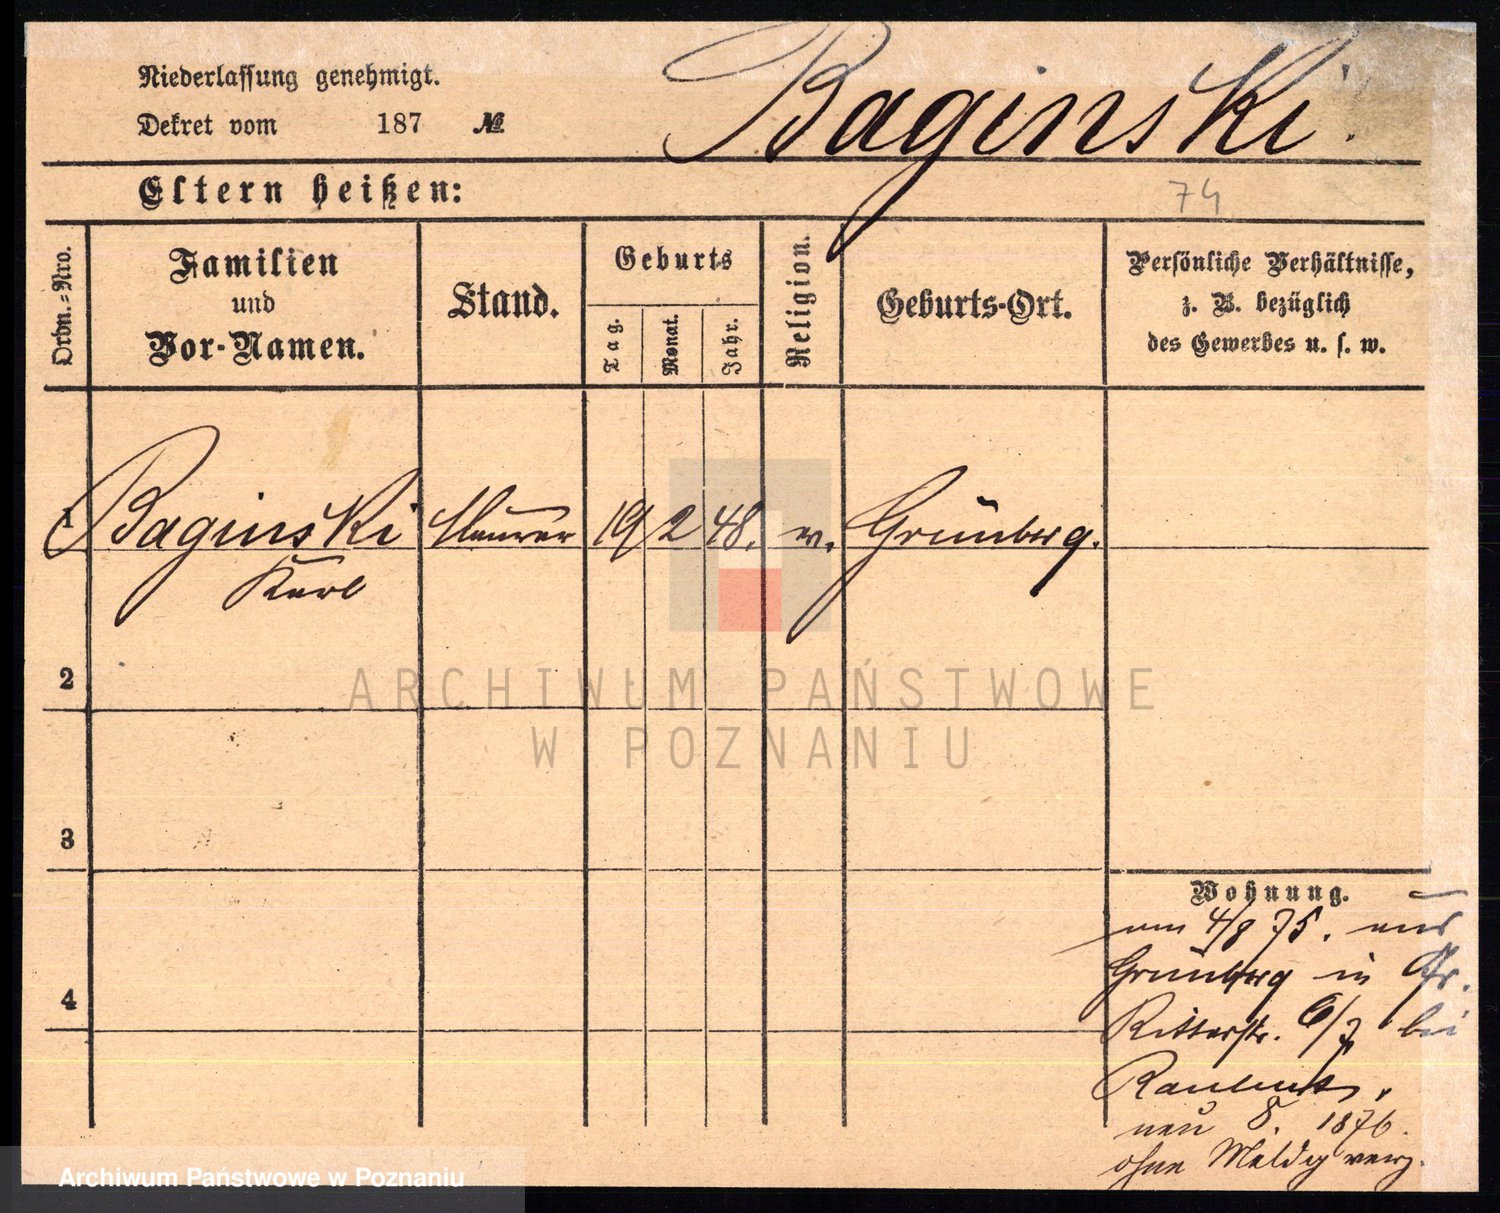 Niederlassung genehmigt.
Dekret vom 187 №
Baginski.
Eltern heißen:
74
Ordn.=Nro.
Familien
und
Vor-Namen.
Stand.
Geburts
Tag.
Monat.
Jahr.
Religion.
Geburts-Ort.
Persönliche Verhältnisse,
z. B. bezüglich
des Gewerbes u. s. w.
1 Baginski Maurer 19/2 48. ev. Grünberg.
Karl
2
3
4
Wohnung.
am 4/8 75. aus
Grünberg in Gr.
Ritterstr. 6/7 bei
neu 8. 1876.
ohne Meldg verz.
ARCHIWUM PAŃSTWOWE
W POZNANIU
Archiwum Państwowe w Poznaniu